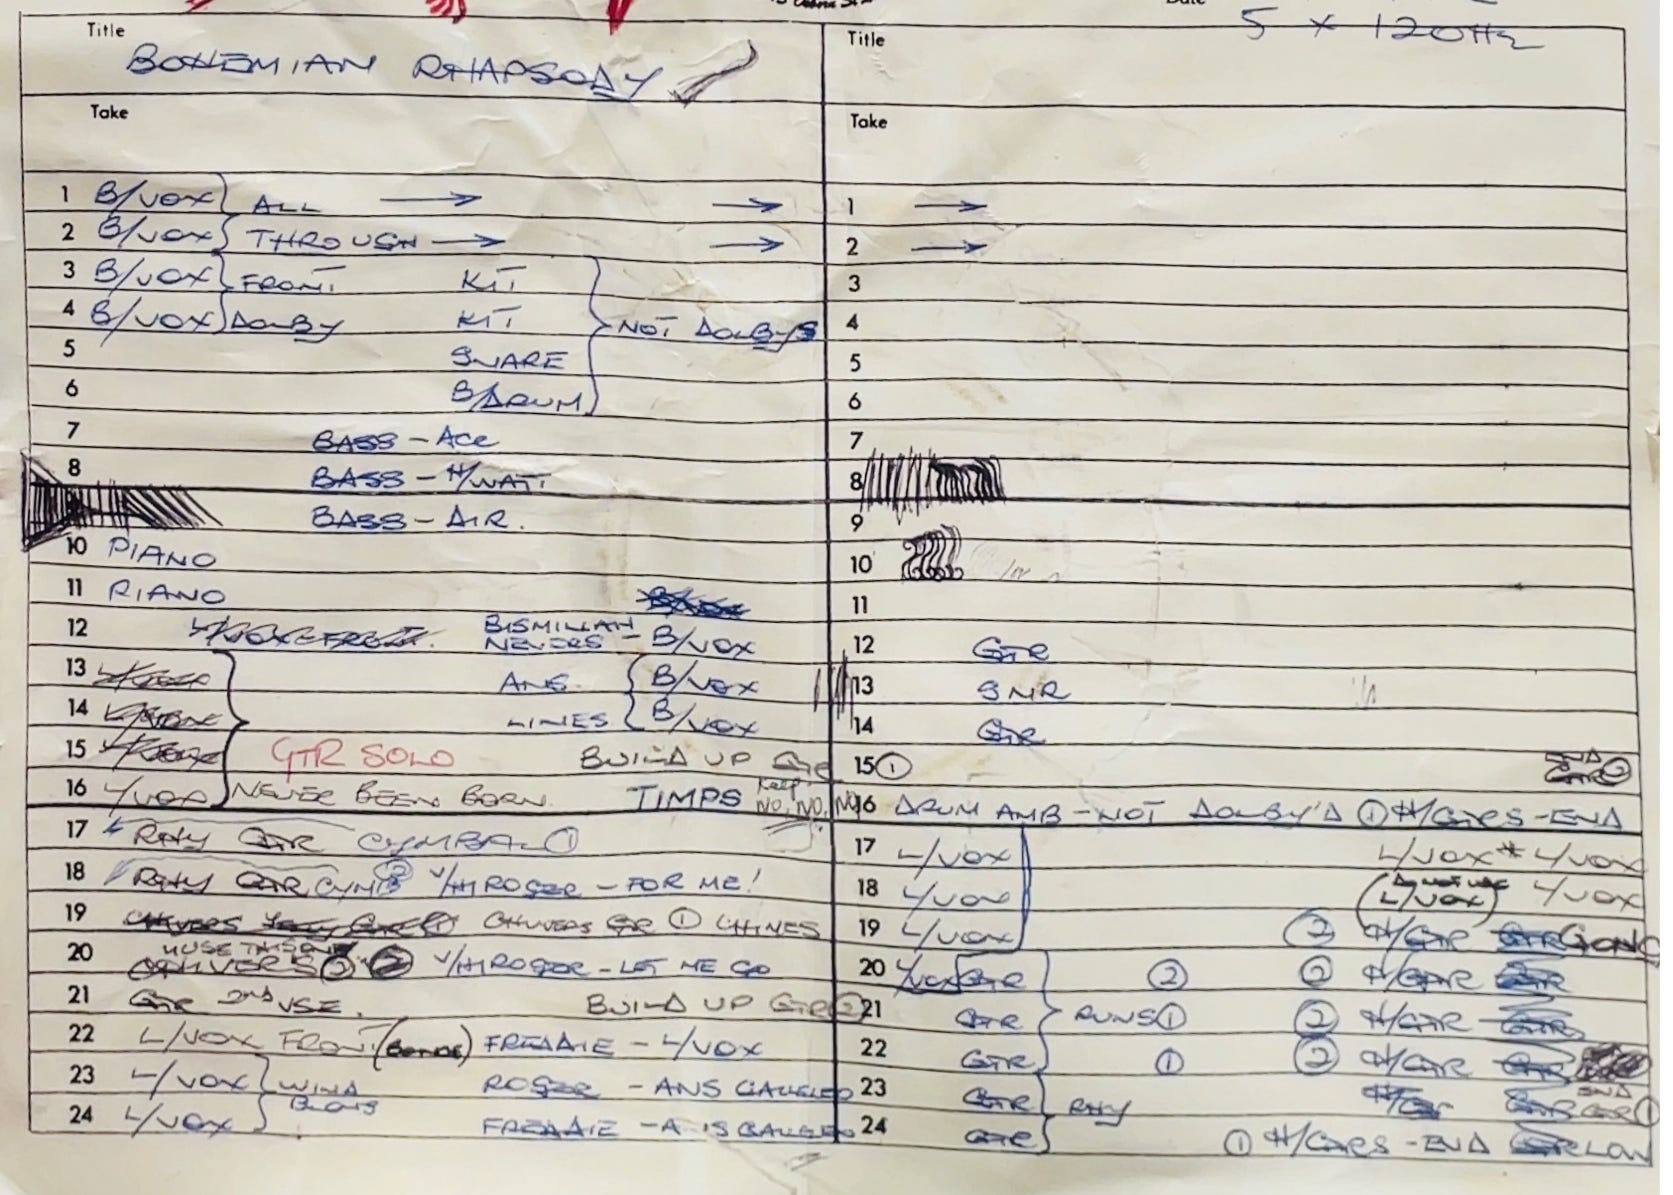 Date
5 x 120Hz
Title
BOHEMIAN RHAPSODY
Title
Take
Take
1 B/VOX } ALL → →
2 B/VOX } THROUGH → →
3 B/VOX } FRONT KIT
4 B/VOX } DOLBY KIT } NOT DOLBYS
5 SNARE
6 B/DRUM
7 BASS - ACC
8 BASS - H/WATT
BASS - AIR.
10 PIANO
11 PIANO
12 BISMILLAH NEVERS - B/VOX
13 ANS. { B/VOX
14 LINES { B/VOX
15 GTR SOLO BUILD UP GTR
16 L/VOX NEVER BEEN BORN. TIMPS Keep NO, NO, NO
17 RHY GTR CYMBAL ①
18 RHY GTR CYMB ② V/HI ROGER - FOR ME!
19 GTR ① CHIMES
20 USE THIS ONE ② V/HI ROGER - LET ME GO
21 GTR 2ND VSE. BUILD UP GTR ②
22 L/VOX FRONT FREDDIE - L/VOX
23 L/VOX } WIND ROGER - ANS GALLILEO
24 L/VOX } BLOWS FREDDIE - GALLILEO
1 →
2 →
3
4
5
6
7
8
9
10
11
12 GTR
13 SNR
14 GTR
15 ① END GTR ②
16 DRUM AMB - NOT DOLBY'D ① H/GTRS - END
17 L/VOX L/VOX * L/VOX
18 L/VOX (L/VOX) L/VOX
19 L/VOX ② H/GTR GTR GONG
20 L/VOX GTR ② ② H/GTR GTR
21 GTR } RUNS ① ② H/GTR GTR
22 GTR ① ② H/GTR GTR
23 GTR } RHY END GTR ①
24 GTR ① H/GTRS - END GTR LOW